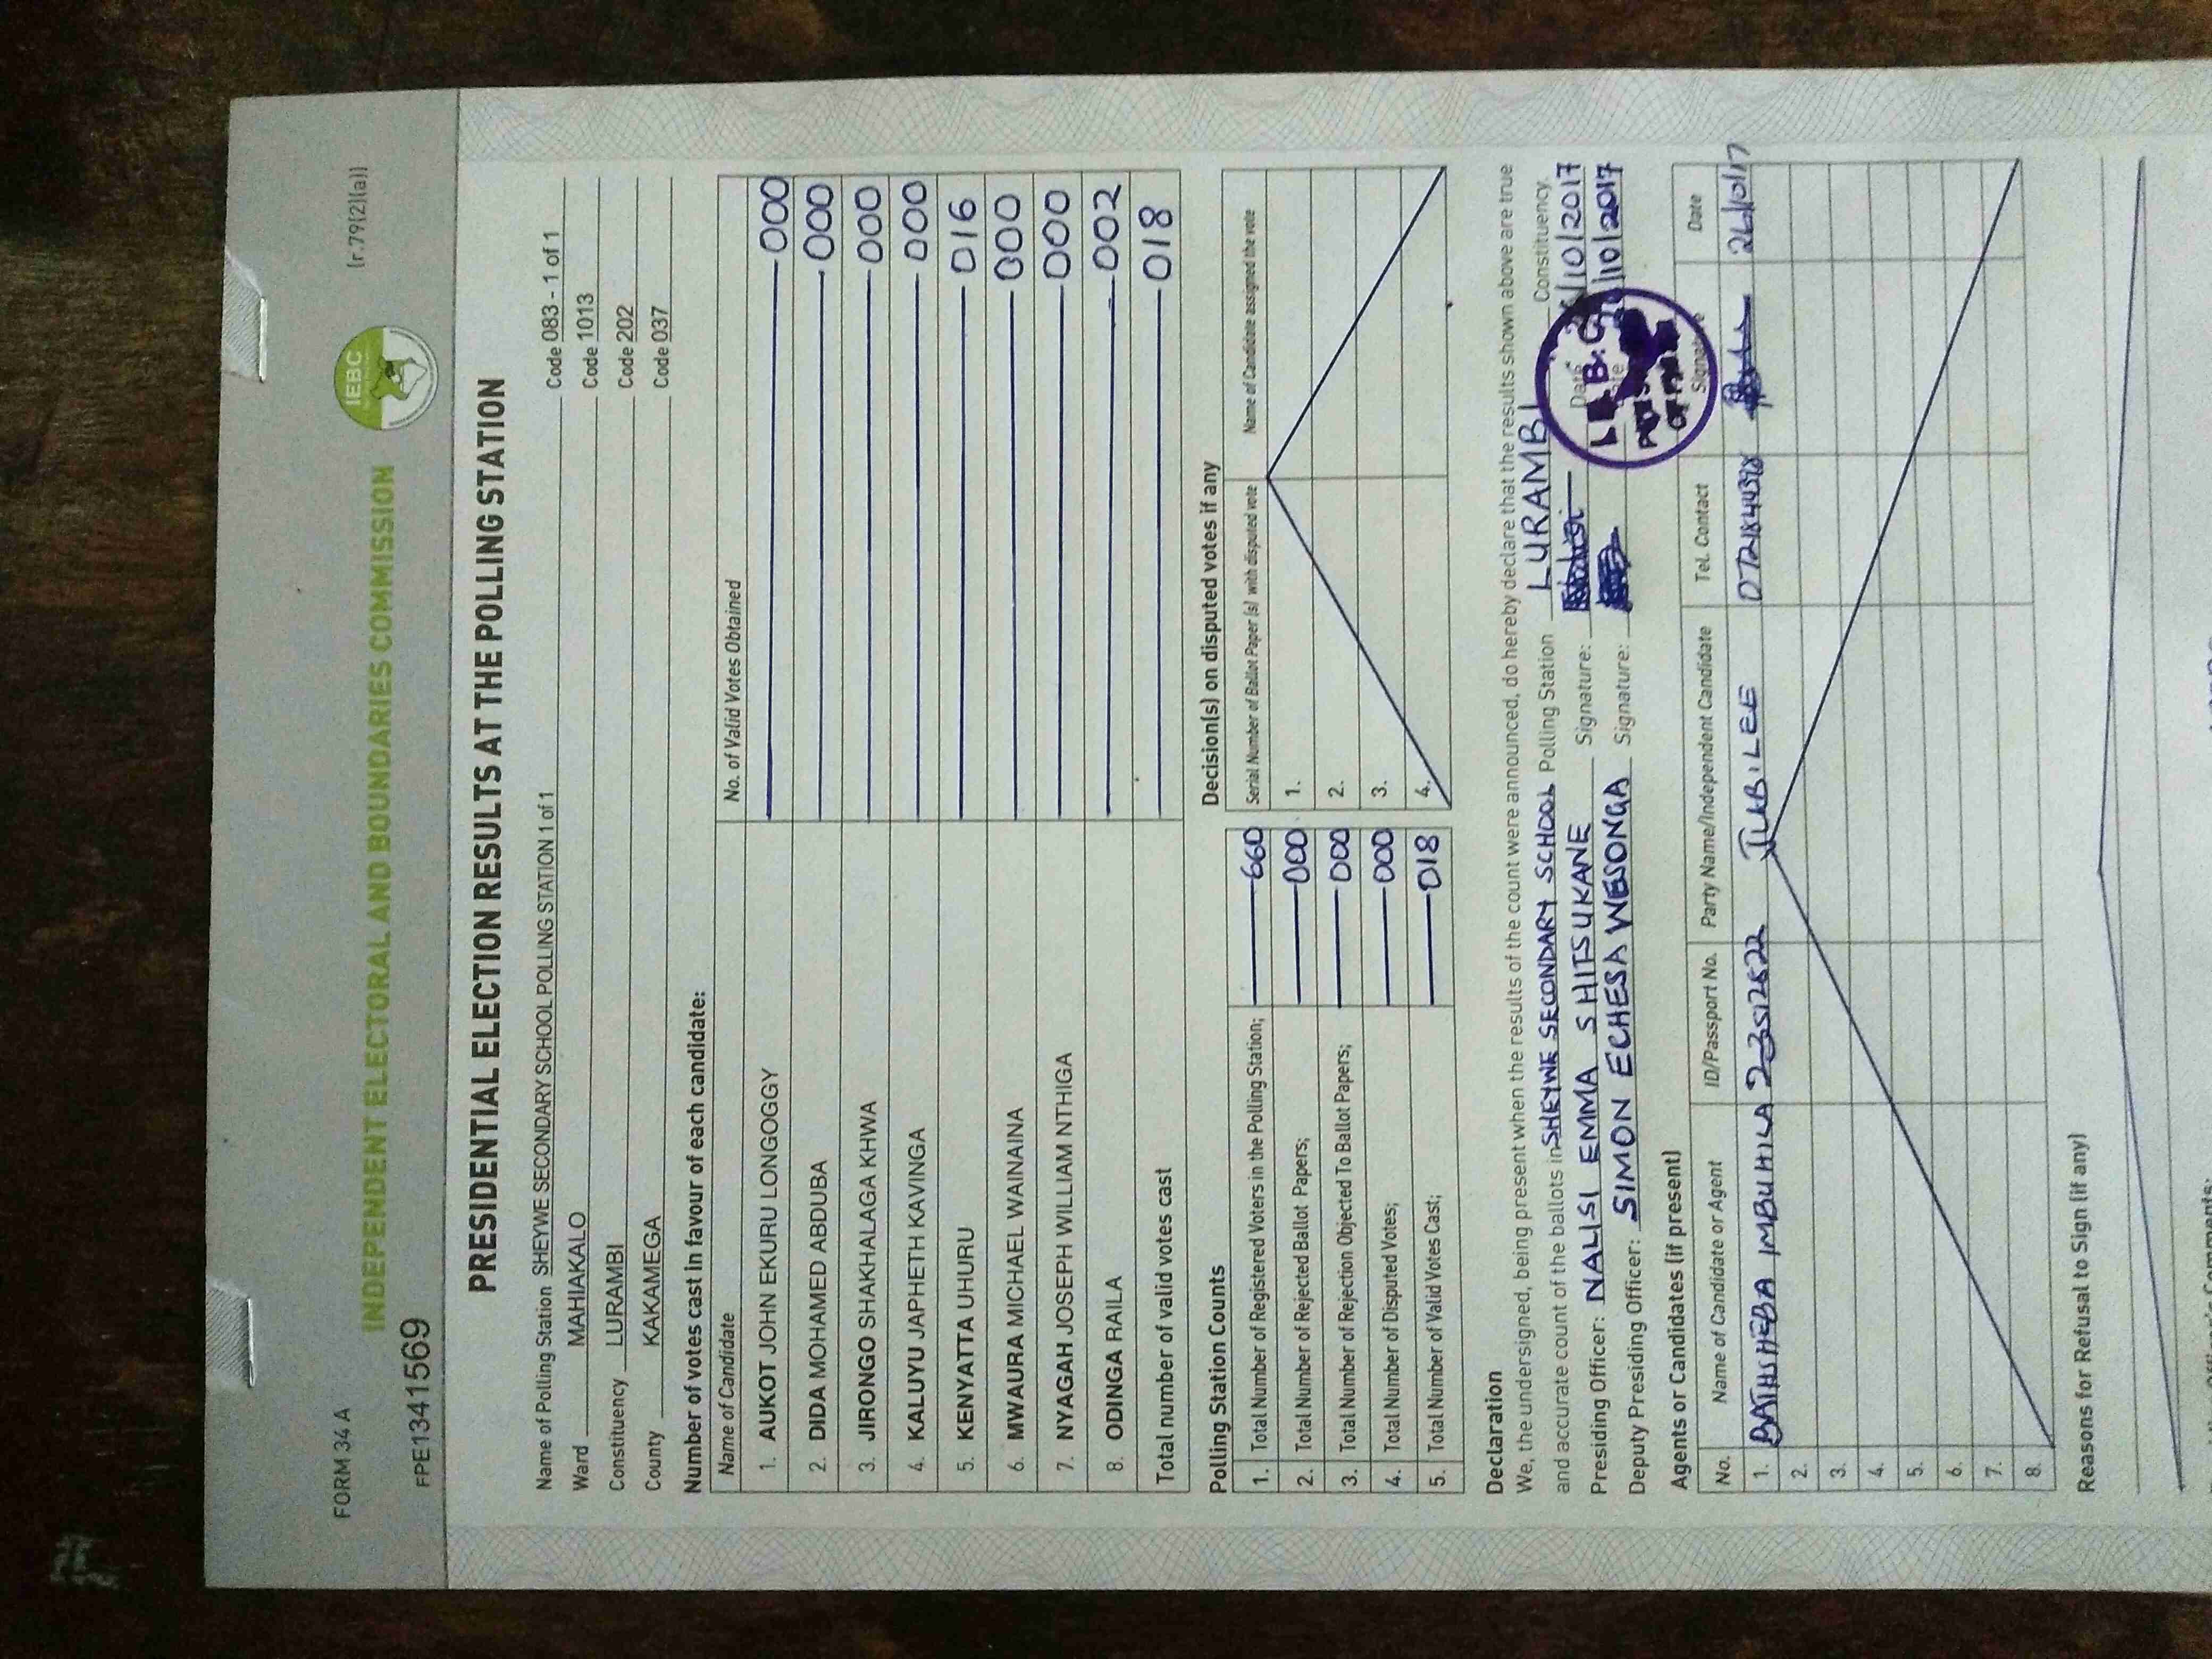 FORM 34 A
(r.79(2)(a))
IEBC
INDEPENDENT ELECTORAL AND BOUNDARIES COMMISSION
FPE1341569
PRESIDENTIAL ELECTION RESULTS AT THE POLLING STATION
Name of Polling Station SHEYWE SECONDARY SCHOOL POLLING STATION 1 of 1 Code 083 - 1 of 1
Ward MAHIAKALO Code 1013
Constituency LURAMBI Code 202
County KAKAMEGA Code 037
Number of votes cast in favour of each candidate:
Name of Candidate No. of Valid Votes Obtained
1. AUKOT JOHN EKURU LONGOGGY 000
2. DIDA MOHAMED ABDUBA 000
3. JIRONGO SHAKHALAGA KHWA 000
4. KALUYU JAPHETH KAVINGA 000
5. KENYATTA UHURU 016
6. MWAURA MICHAEL WAINAINA 000
7. NYAGAH JOSEPH WILLIAM NTHIGA 000
8. ODINGA RAILA 002
Total number of valid votes cast 018
Polling Station Counts
1. Total Number of Registered Voters in the Polling Station; 660
2. Total Number of Rejected Ballot Papers; 000
3. Total Number of Rejection Objected To Ballot Papers; 000
4. Total Number of Disputed Votes; 000
5. Total Number of Valid Votes Cast; 018
Decision(s) on disputed votes if any
Serial Number of Ballot Paper (s) with disputed vote Name of Candidate assigned the vote
1.
2.
3.
4.
Declaration
We, the undersigned, being present when the results of the count were announced, do hereby declare that the results shown above are true
and accurate count of the ballots in SHEYWE SECONDARY SCHOOL Polling Station LURAMBI Constituency.
Presiding Officer: NALISI EMMA SHITSUKANE Signature: Date /10/2017
Deputy Presiding Officer: SIMON ECHESA WESONGA Signature: /10/2017
Agents or Candidates (if present)
No. Name of Candidate or Agent ID/Passport No. Party Name/Independent Candidate Tel. Contact Signature Date
1. BATHSHEBA IMBUHILA 23512622 JUBILEE 26/10/17
2.
3.
4.
5.
6.
7.
8.
Reasons for Refusal to Sign (if any)